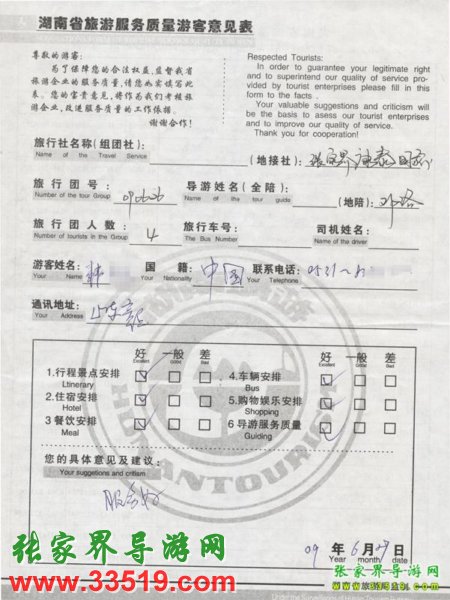 湖南省旅游服务质量游客意见表
尊敬的游客:
为了保障您的合法权益,监督我省
旅游企业的服务质量,请您如实填写此
表。您的宝贵意见,将作为我们考核旅
游企业,改进服务质量的工作依据。
谢谢合作!
Respected Tourists:
In order to guarantee your legitimate right
and to superintend our quality of service pro-
vided by tourist enterprises please fill in this
form to the facts .
Your valuable suggestions and criticism will
be the basis to assess our tourist enterprises
and to improve our quality of service.
Thank you for cooperation!
旅行社名称(组团社): (地接社): 张家界
Name of the Travel Service
旅行团号: 090626 导游姓名(全陪): (地陪):
Number of the tour Group Name of the tour guide
旅行团人数: 4 旅行车号: 司机姓名:
Number of tourists in the Group The Bus Number Name of the driver
游客姓名: 韩 国籍: 中国 联系电话: 0531
Your Name Your Nationality Your Telephone
通讯地址: 山东
Your Address
好 一般 差 好 一般 差
Excellent Good Bad Excellent Good Bad
1.行程景点安排 4.车辆安排
Ltinerary Bus
2.住宿安排 5.购物娱乐安排
Hotel Shopping
3 餐饮安排 6 导游服务质量
Meal Guiding
您的具体意见及建议:
Your suggetions and critism
服务好
09 年 6 月 29 日
Year month date
张家界导游网
www.33519.com
张家界导游网
www.33519.com